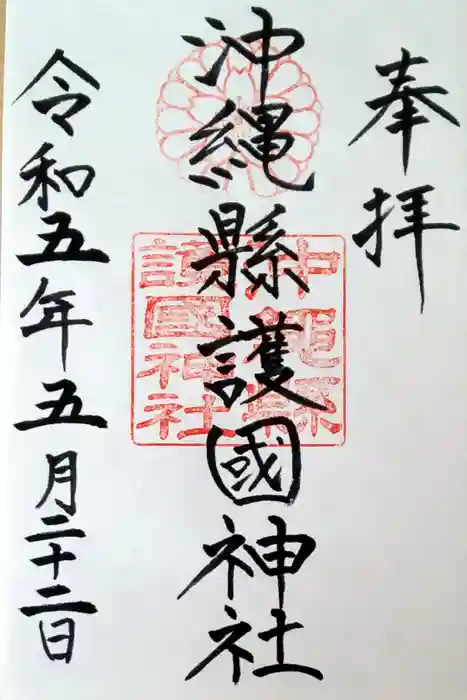 奉拝
沖縄縣護國神社
令和五年五月二十二日
沖縄縣
護國神社